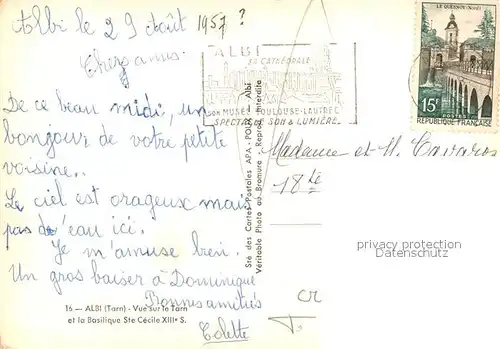 Albi le 29 Août 1957 ?
Chers amis.
De ce beau midi, un
bonjour de votre petite
voisine..
Le ciel est orageux mais
pas d'eau ici.
Je m'amuse bien.
Un gros baiser à Dominique
Bonnes amitiés
Colette
16 — ALBI (Tarn) - Vue sur le Tarn
et la Basilique Ste Cécile XIIIe S.
ALBI
SA CATHÉDRALE
SON MUSÉE TOULOUSE-LAUTREC
SPECTACLE SON & LUMIÈRE
Sté des Cartes Postales APA - POUX - Albi
Véritable Photo au Bromure - Reprod. Interdite
LE QUESNOY (Nord)
15F
POSTES
REPUBLIQUE FRANÇAISE
Madame et M.
privacy protection
Datenschutz